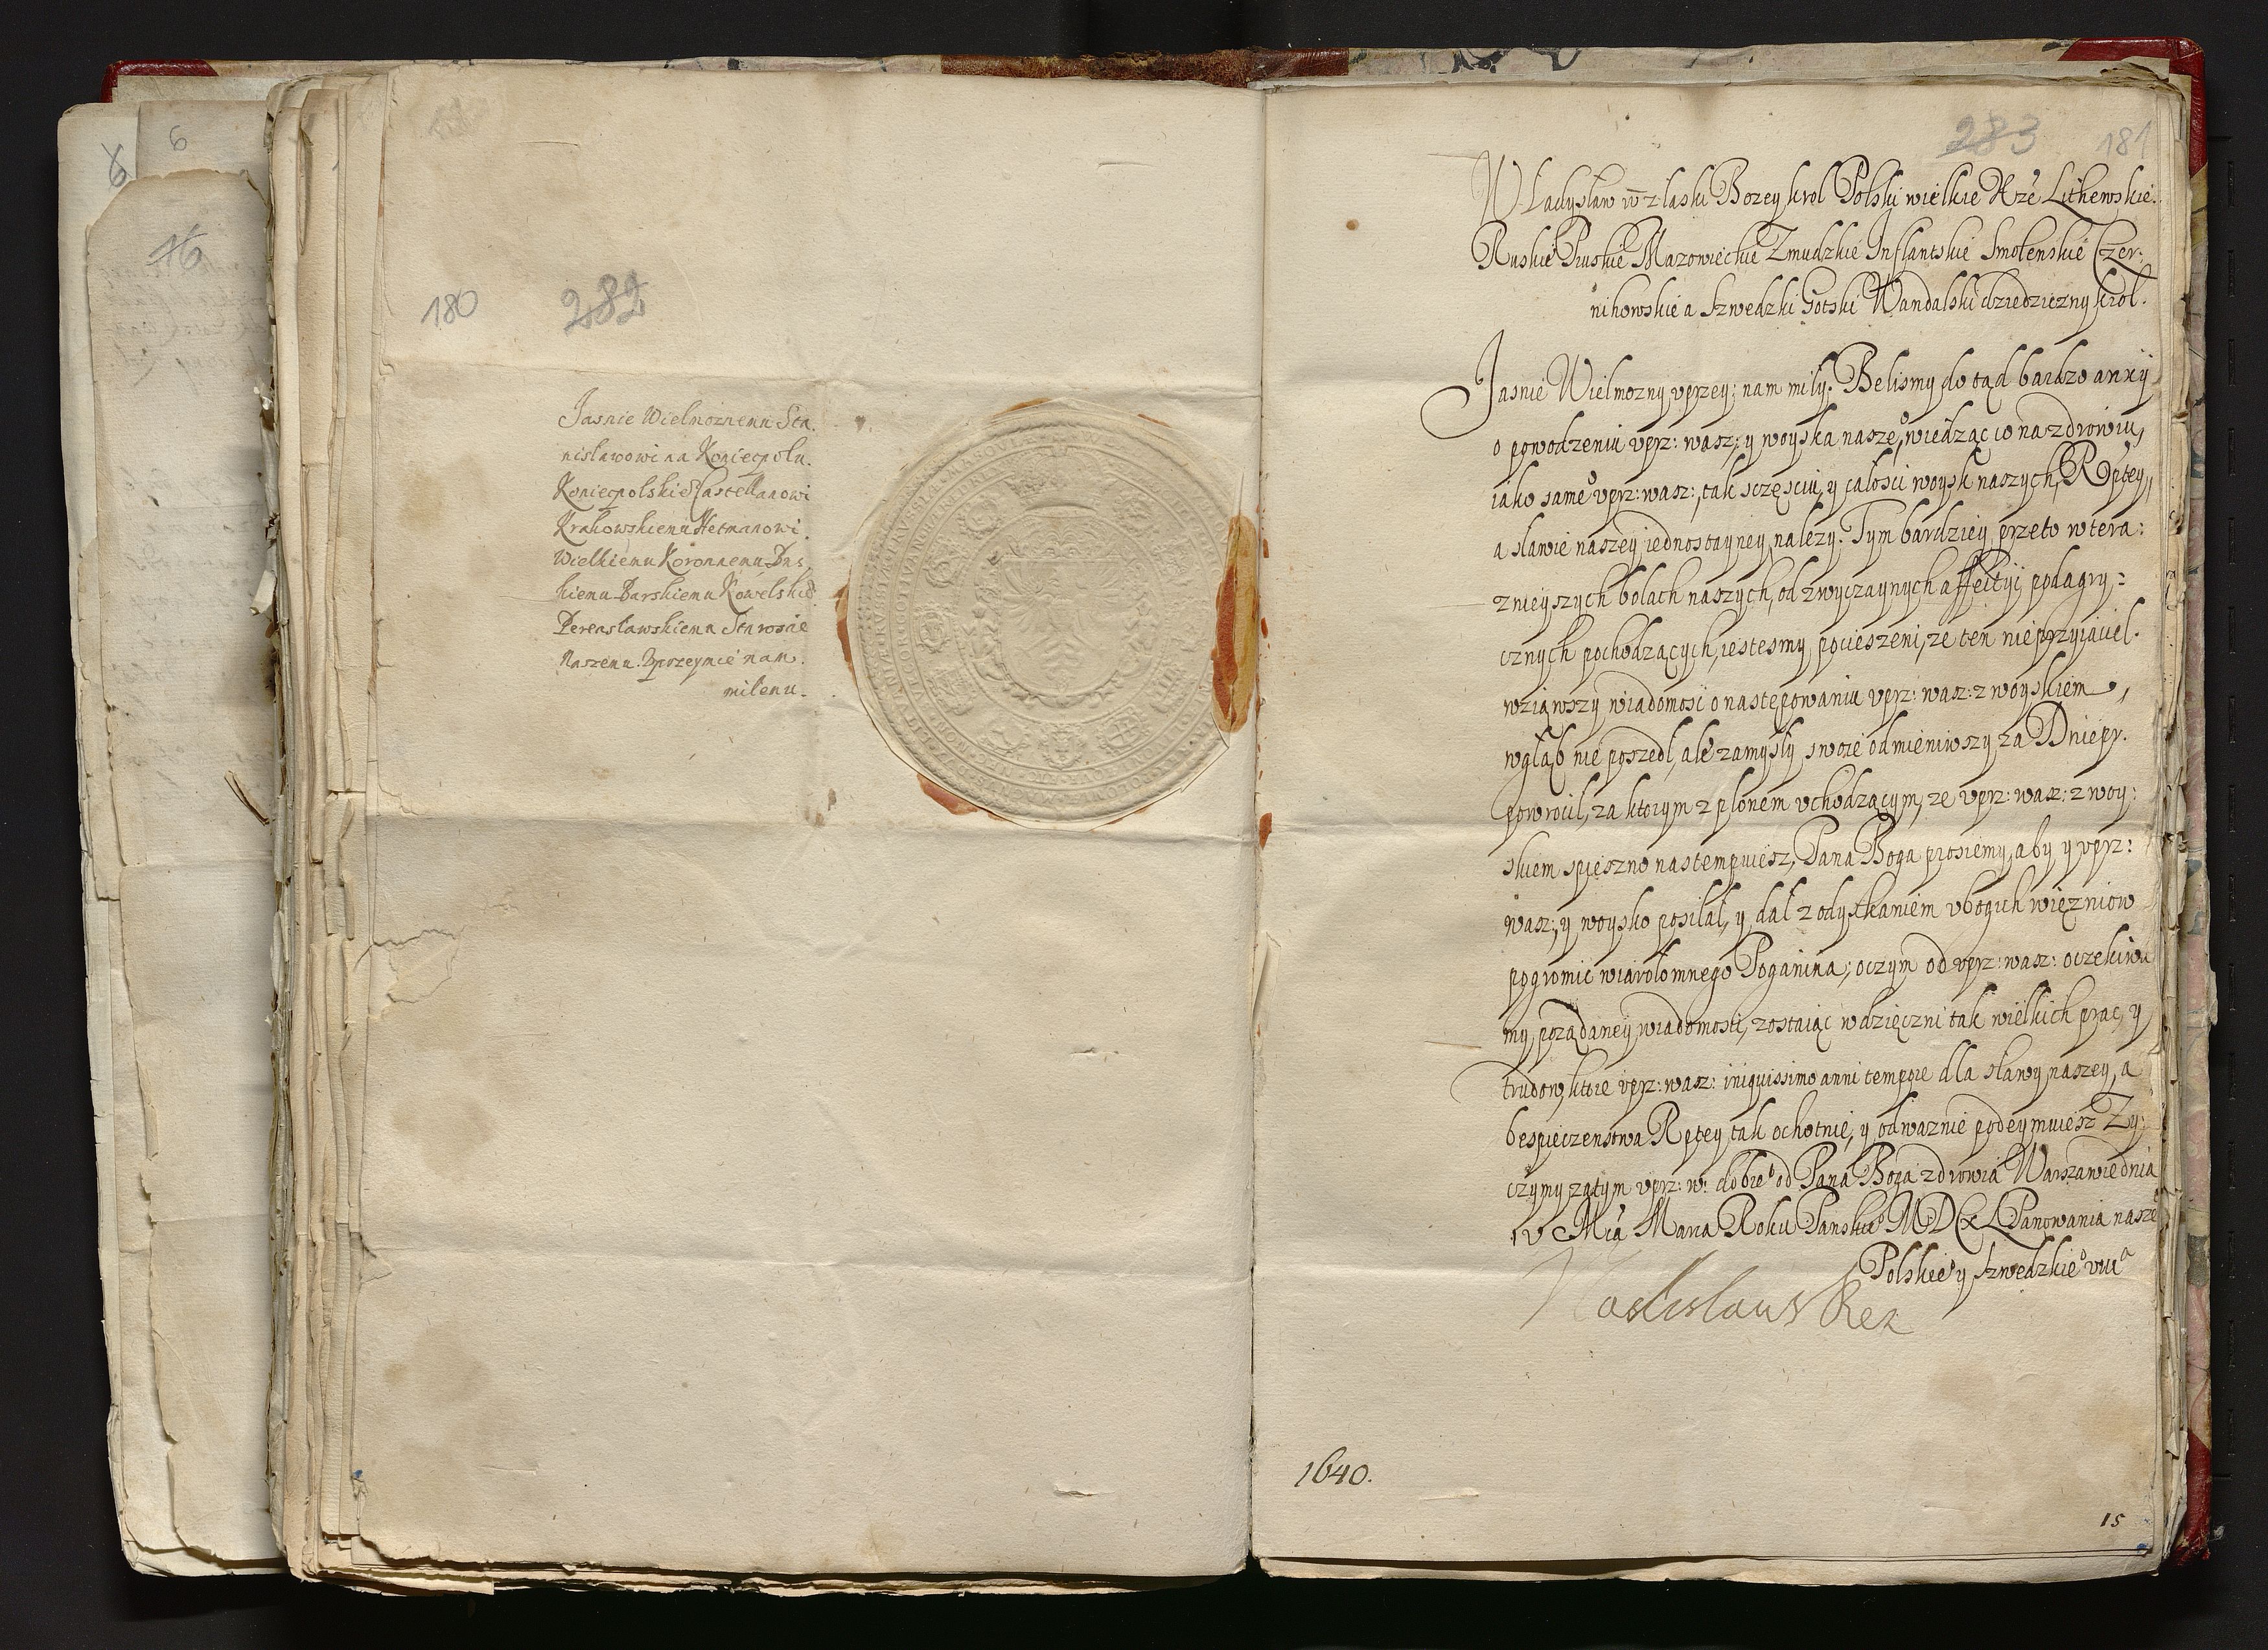 6
6
16
180
282
Jasnie Wielmoznemu Sta.
nisławowi na Koniecpolu.
Koniecpolskieo Castellanowi
Krakowskiemu Hetmanowi.
Wielkiemu Koronnemu Bus
kiemu Barskiemu Kowelskieo
Pereasławskiemu Staroscie
Naszemu. Vprzeymie nam.
miłemu.
283
181
Władysław z łaski Bozey krol Polski wielkie Xże Lithewskie.
Ruskie Pruskie Mazowieckie Zmudzkie Inflantskie Smolenskie Czer:
nihowskie a Szwedzki Gotski Wandalski dziedziczny krol.
Jasnie Wielmozny vprzey: nam miły. Belismy do tąd bardzo anxij
o powodzeniu vprz: wasz: y woyska naszeo, wiedząc io na zdrowiu,
iako sameo vprz: wasz:, tak sczęsciu, y całosci woysk naszych, Rptey,
a sławie naszey jednostayney nalezy. Tym bardziey przeto w tera:
znieyszych bolach naszych, od zwyczaynych affectij podagry:
cznych pochodzących, iestesmy pocieszeni, ze ten nieprzyiaciel.
wziąwszy wiadomosc o następowaniu vprz: wasz: z woyskiem,
wgłąb nie poszedl, ale zamysły swoie odmieniwszy za Dniepr.
powrocił, za ktorym z plonem vchodzącym, ze vprz: wasz: z woy:
skiem spieszno nastempuiesz, Pana Boga prosiemy, aby y vprz:
wasz:, y woysko posilał, y dał z odyskaniem vbogich więzniow
pogromic wiarołomnego Poganina; o czym od vprz: wasz: oczekiwa
my pożądaney wiadomosci, zostaiąc wdzięczni tak wielkich prac, y
trudow, ktore vprz: wasz: iniquissimo anni tempore dla sławy naszey, a
bespieczenstwa Rptey tak ochotnie, y odwaznie podeymuiesz Zy:
czymy zatym vprz: w: dobreo od Pana Boga zdrowia Warszawie dnia
Mca Marca Roku Panskieo MDCXL Panowania naszeo
Polskieo y Szwedzkieo viiio
Vladislaus Rex
1640.
15